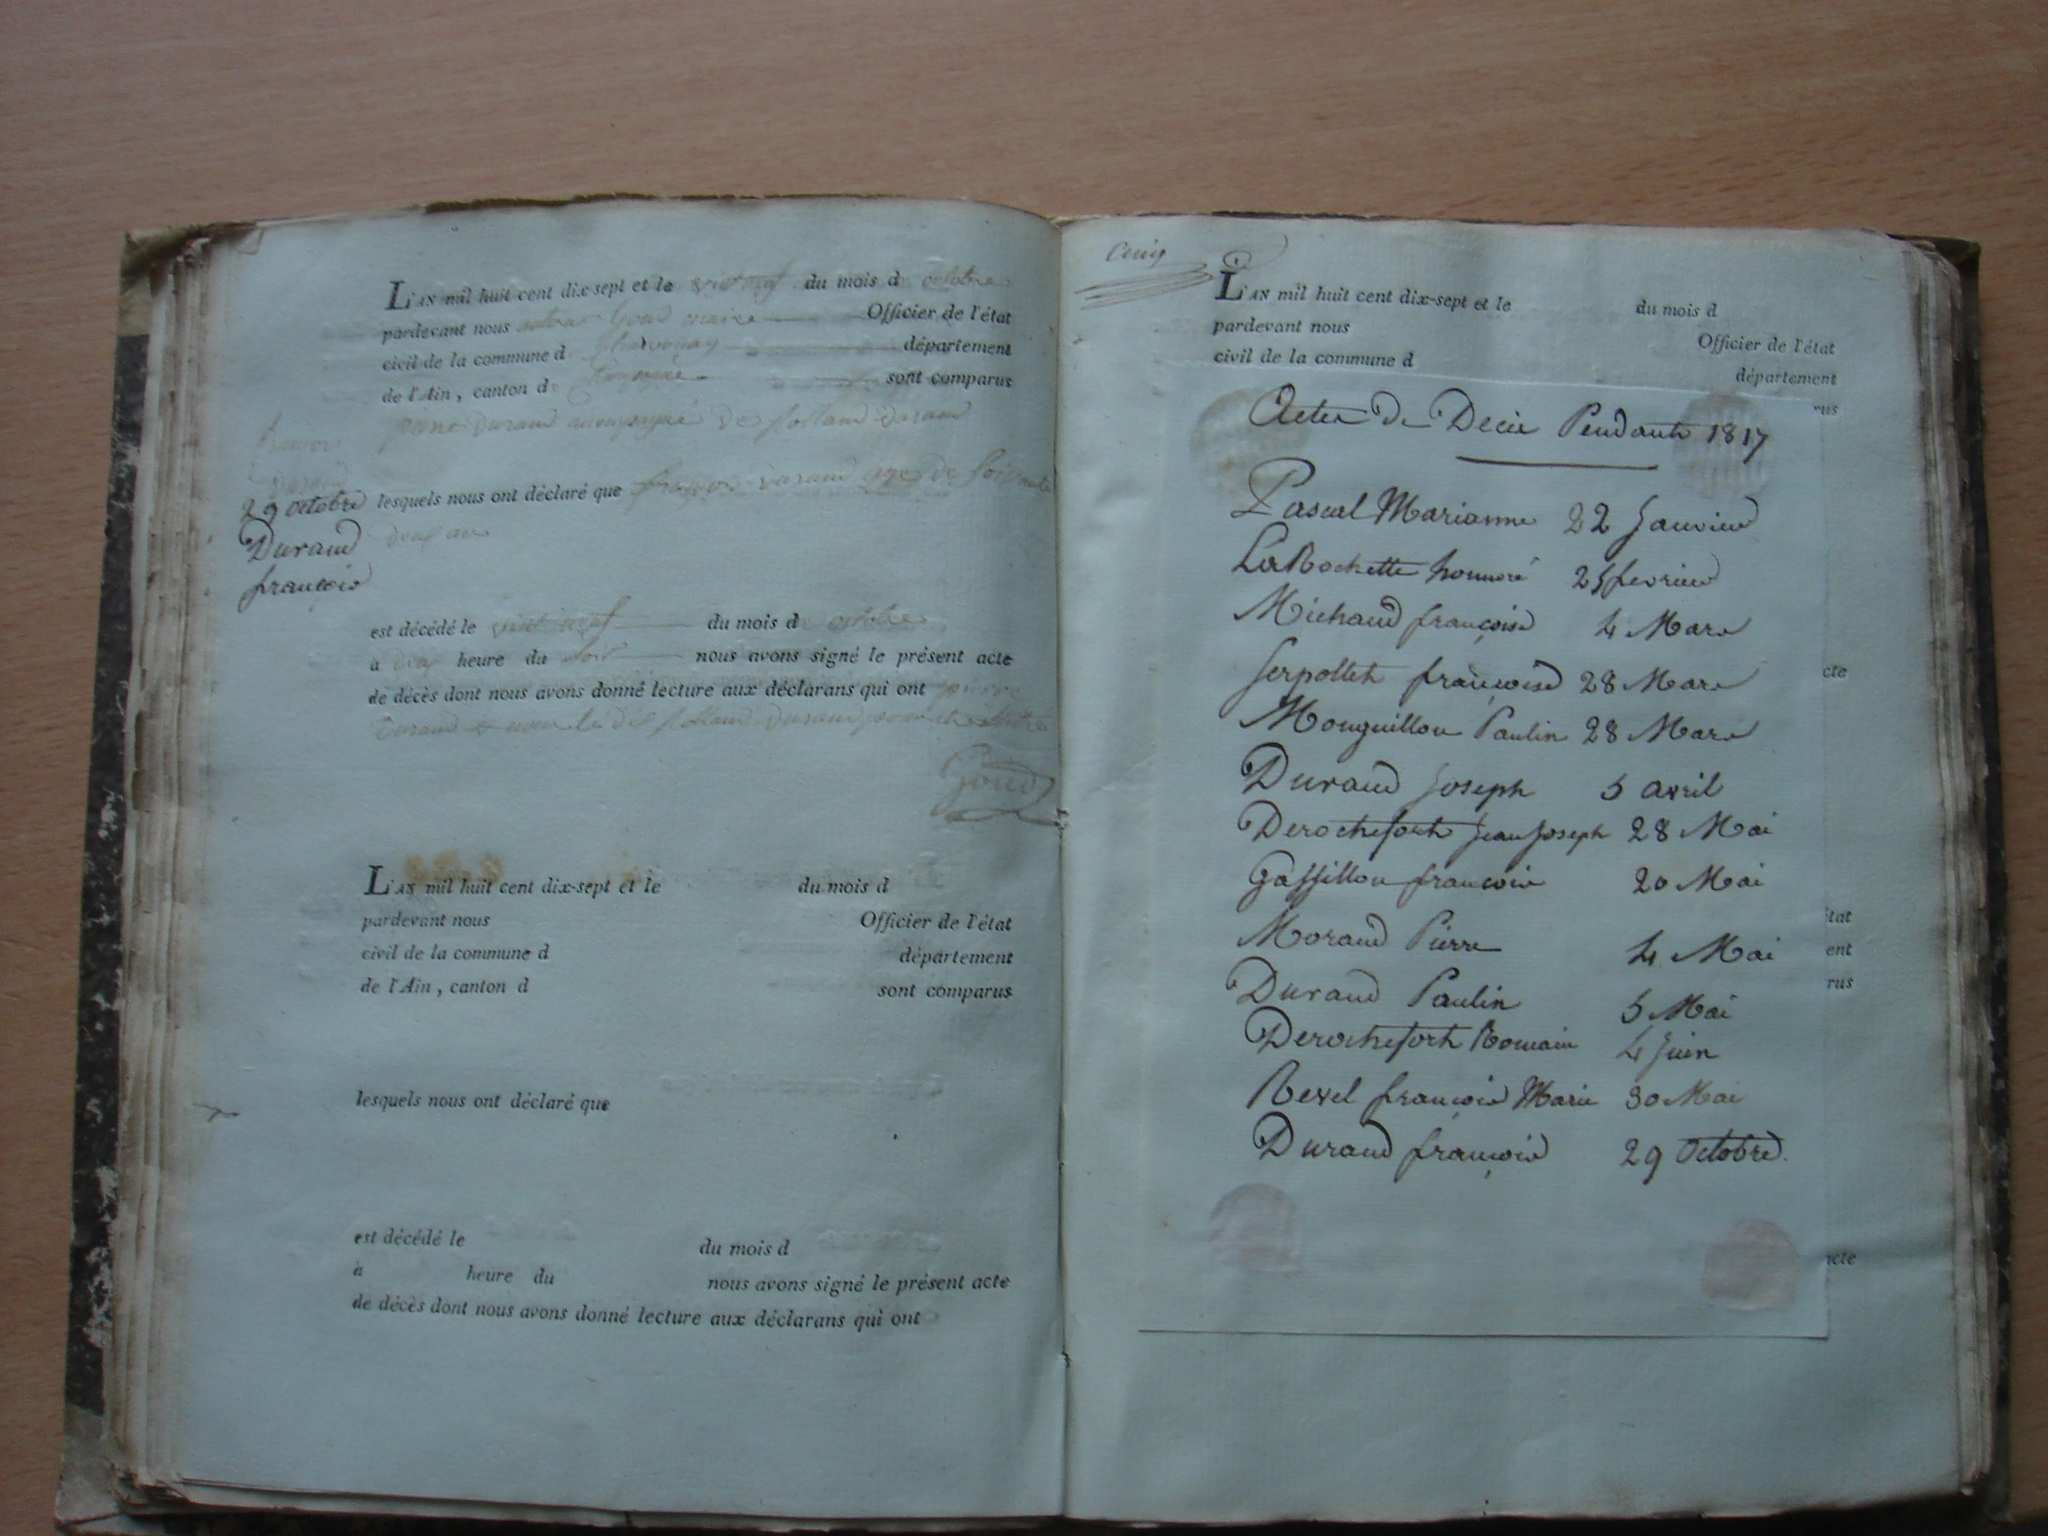 L'AN mil huit cent dix-sept et le vint neuf du mois d octobre
pardevant nous Goud maire Officier de l'état
civil de la commune d département
de l'Ain, canton d sont comparus
durand accompagné de durand
29 octobre
Durand
françois
lesquels nous ont déclaré que françois durand age de
deux ans
est décédé le vint neuf du mois d octobre
à dix heure du soir nous avons signé le présent acte
de décès dont nous avons donné lecture aux déclarans qui ont
durand durand
Goud
L'AN mil huit cent dix-sept et le du mois d
pardevant nous Officier de l'état
civil de la commune d département
de l'Ain, canton d sont comparus
lesquels nous ont déclaré que
est décédé le du mois d
à heure du nous avons signé le présent acte
de décès dont nous avons donné lecture aux déclarans qui ont
L'AN mil huit cent dix-sept et le du mois d
pardevant nous Officier de l'état
civil de la commune d département
rus
Actes de Décès Pendants 1817
Pascal Marianne 22 Janvier
LaRochette honnoré 25 fevrier
Michaud françoise 4 Mars
Serpollet françoise 28 Mars
cte
Monguillon Paulin 28 Mars
Durand Joseph 5 avril
Derochefort Jean Joseph 28 Mai
Gassillon françois 20 Mai
état
Morand Pierre 4 Mai
ent
rus
Durand Paulin 5 Mai
Derochefort Romain 4 Juin
Revel françois Marie 30 Mai
Durand françois 29 Octobre.
acte